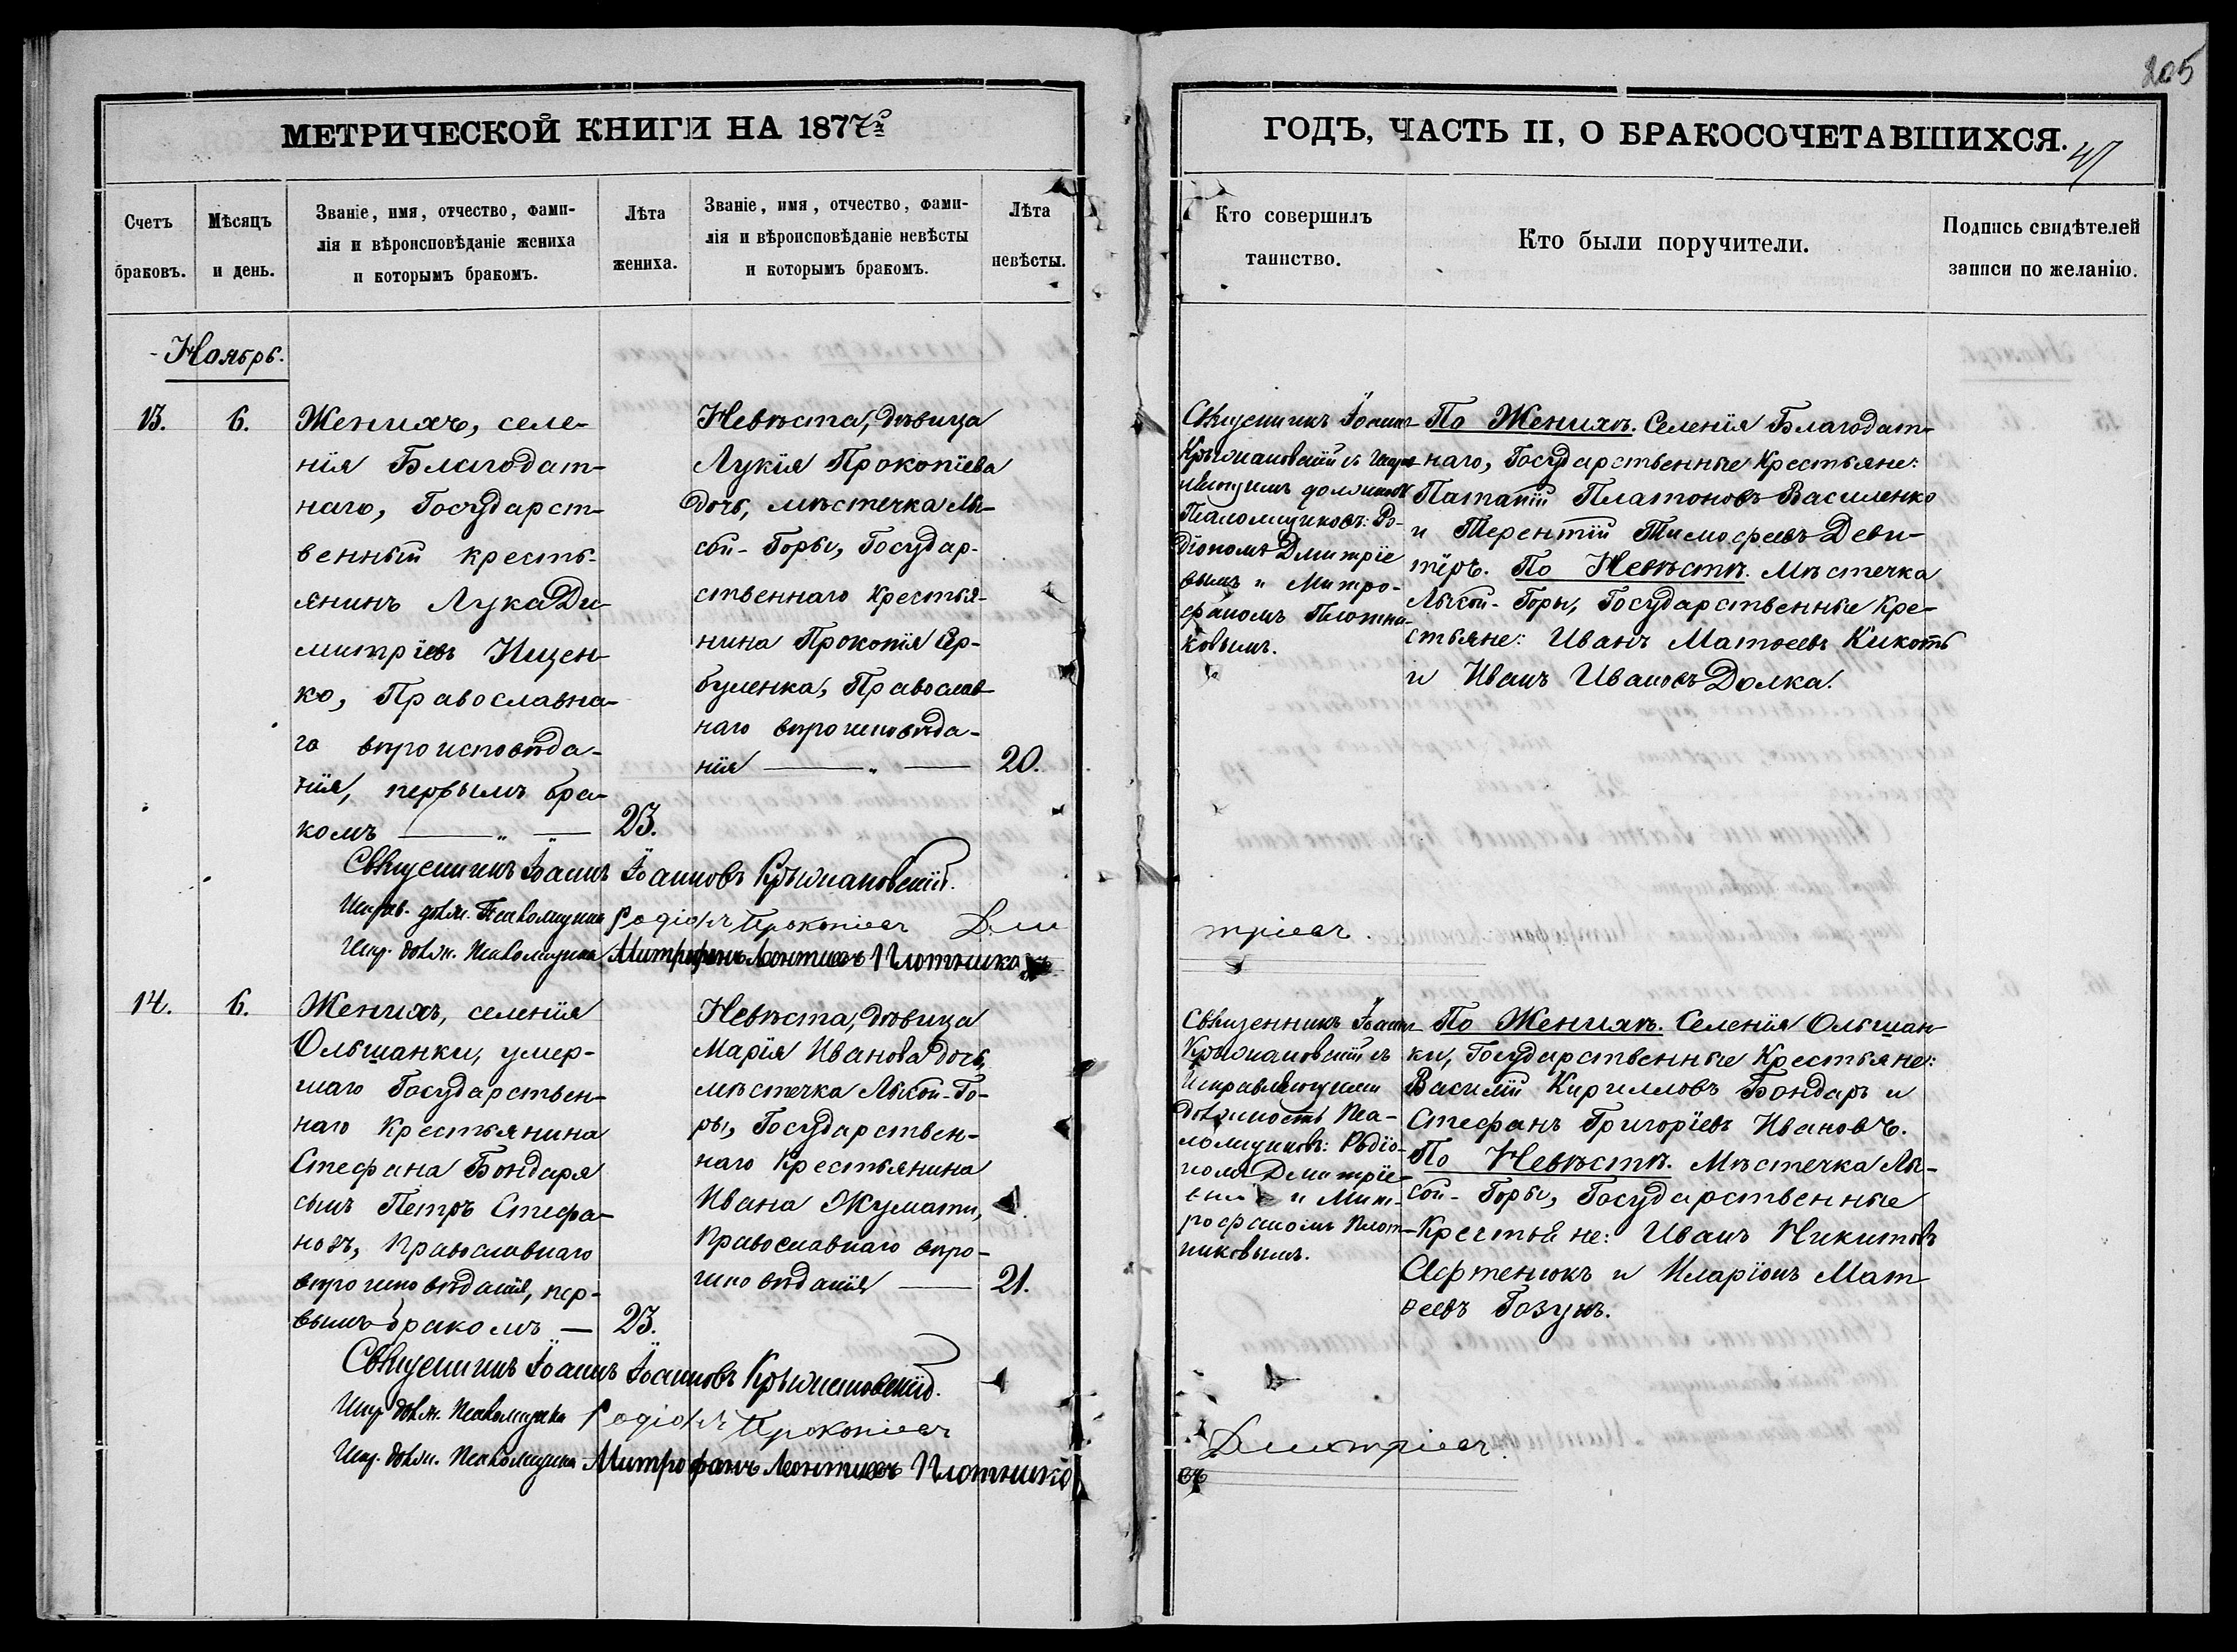 205
МЕТРИЧЕСКОЙ КНИГИ НА 1877й
ГОДЪ, ЧАСТЬ II, О БРАКОСОЧЕТАВШИХСЯ.
Счетъ
браковъ.
Мѣсяцъ
и день.
Званіе, имя, отчество, фами-
лія и вѣроисповѣданіе жениха
и которымъ бракомъ.
Лѣта
жениха.
Званіе, имя, отчество, фами-
лія и вѣроисповѣданіе невѣсты
и которымъ бракомъ.
Лѣта
невѣсты.
Кто совершилъ
таинство.
Кто были поручители.
Подпись свидѣтелей
записи по желанію.
Ноябрь.
13.
6.
Женихъ, селе-
нія Благодат-
наго, Государст-
венный кресть-
янинъ Лука Ди-
митріевъ Ищен-
ко, Православна-
го вѣроисповѣда-
нія, первымъ бра-
комъ
23.
Невѣста, дѣвица
Лукія Прокопіева
дочь, мѣстечка Лы-
сой-Горы, Государ-
ственнаго Крестья-
нина Прокопія Сер-
буленка, Православ-
наго вѣроисповѣда-
нія
20.
Священникъ Іоаннъ
Крыжановскій съ Исправ-
ляющимъ должность
Псаломщиковъ: Ро-
діономъ Дмитріе
вымъ и Митро-
фаномъ Плотни-
ковымъ.
По Женихѣ. Селенія Благодат-
наго, Государственные Крестьяне:
Патапій Платоновъ Василенко
и Терентій Тимофеевъ Деви-
тіръ. По Невѣстѣ. Мѣстечка
Лысой-Горы, Государственные Кре-
стьяне: Иванъ Матѳеевъ Кикоть
и Иванъ Ивановъ Долка.
Священникъ Іоаннъ Іоанновъ Крыжановскій.
Исправ. долж. Псаломщика Родіонъ Прокопіевъ Дми
тріевъ.
Испр. долж. Псаломщика Митрофанъ Леонтиевъ Плотниковъ
14.
6.
Женихъ, селенія
Ольшанки, умер-
шаго Государствен-
наго Крестьянина
Стефана Бондаря
сынъ Петръ Стефа-
новъ, Православнаго
вѣроисповѣданія, пер-
вымъ бракомъ —
23.
Невѣста, дѣвица
Марія Иванова дочь,
мѣстечка Лысой-Го-
ры, Государствен-
наго Крестьянина
Ивана Жумати,
Православнаго вѣро-
исповѣданія
21.
Священникъ Іоаннъ
Крыжановскій съ
Исправляющими
должность Пса-
ломщиковъ: Родіо-
номъ Дмитріе-
вымъ и Мит-
рофаномъ Плот-
никовымъ.
По Женихѣ. Селенія Ольшан-
ки, Государственные Крестьяне:
Василій Кирилловъ Бондарь и
Стефанъ Григоріевъ Ивановъ.
По Невѣстѣ. Мѣстечка Лы-
сой-Горы, Государственные
Крестьяне: Иванъ Никитовъ
Афтенюкъ и Иларіонъ Мат
ѳеевъ Гозунъ.
Священникъ Іоаннъ Іоанновъ Крыжановскій.
Испр. долж. Псаломщика Родіонъ Прокопіевъ
Дмитріевъ.
Испр. долж. Псаломщика Митрофанъ Леонтиевъ Плотнико
въ